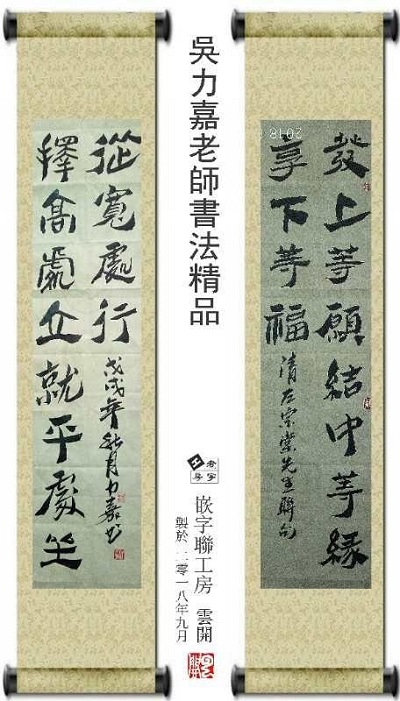 2018
發上等願結中等緣
享下等福
清左宗棠先生聯句
吳力嘉老師書法精品
嵌字聯工房 雲開
製於二零一八年九月
擇高處立就平處坐
從寬處行
戊戌年秋月力嘉書